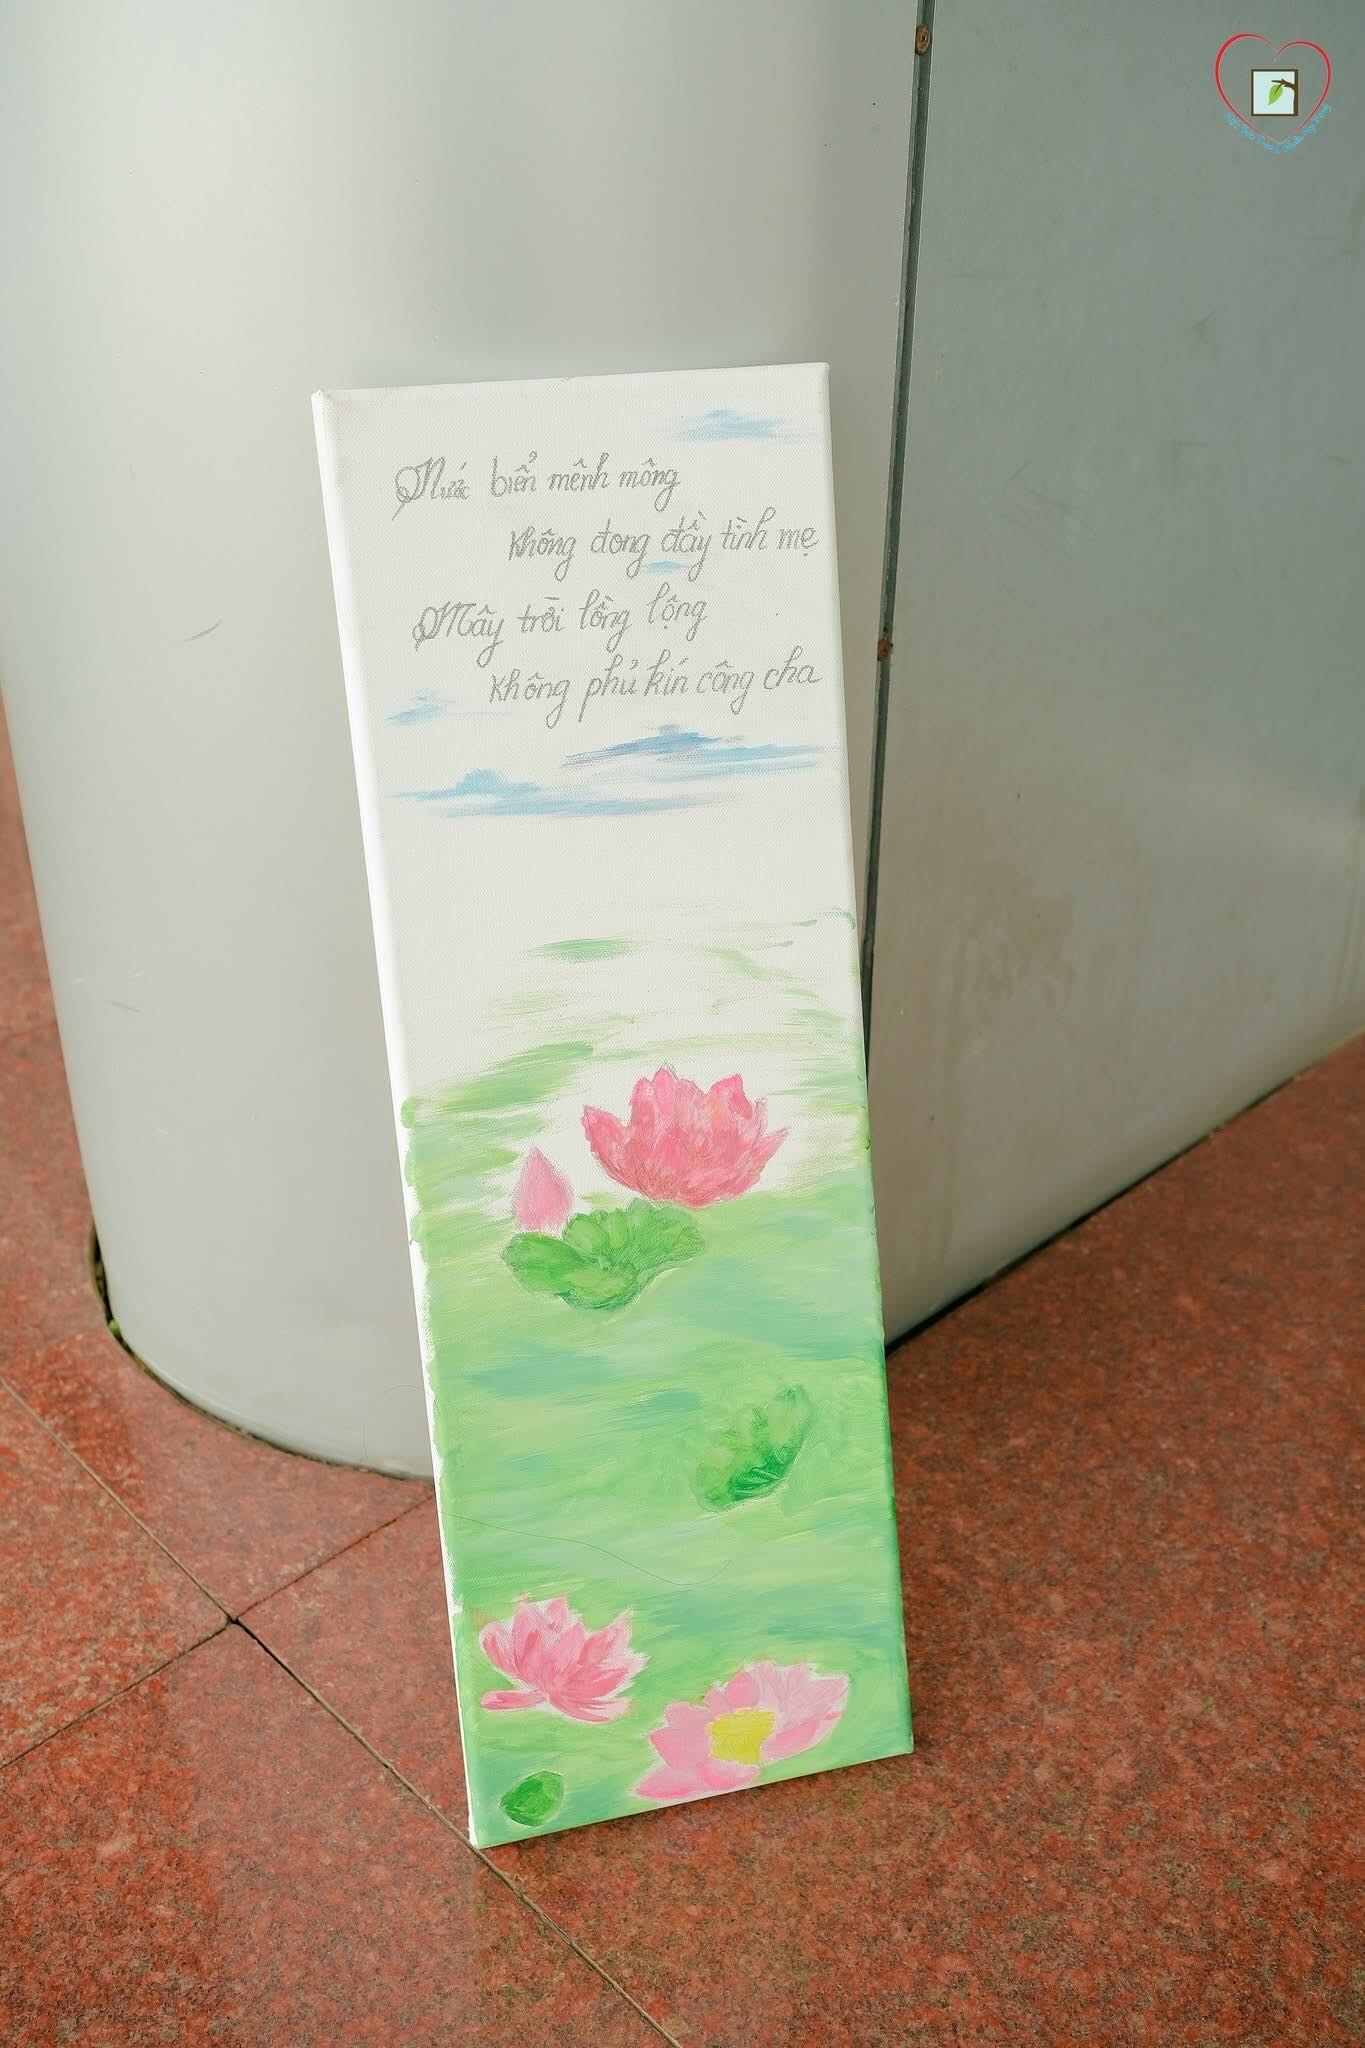 Nước biển mênh mông
không đong đầy tình mẹ
Mây trời lồng lộng
không phủ kín công cha